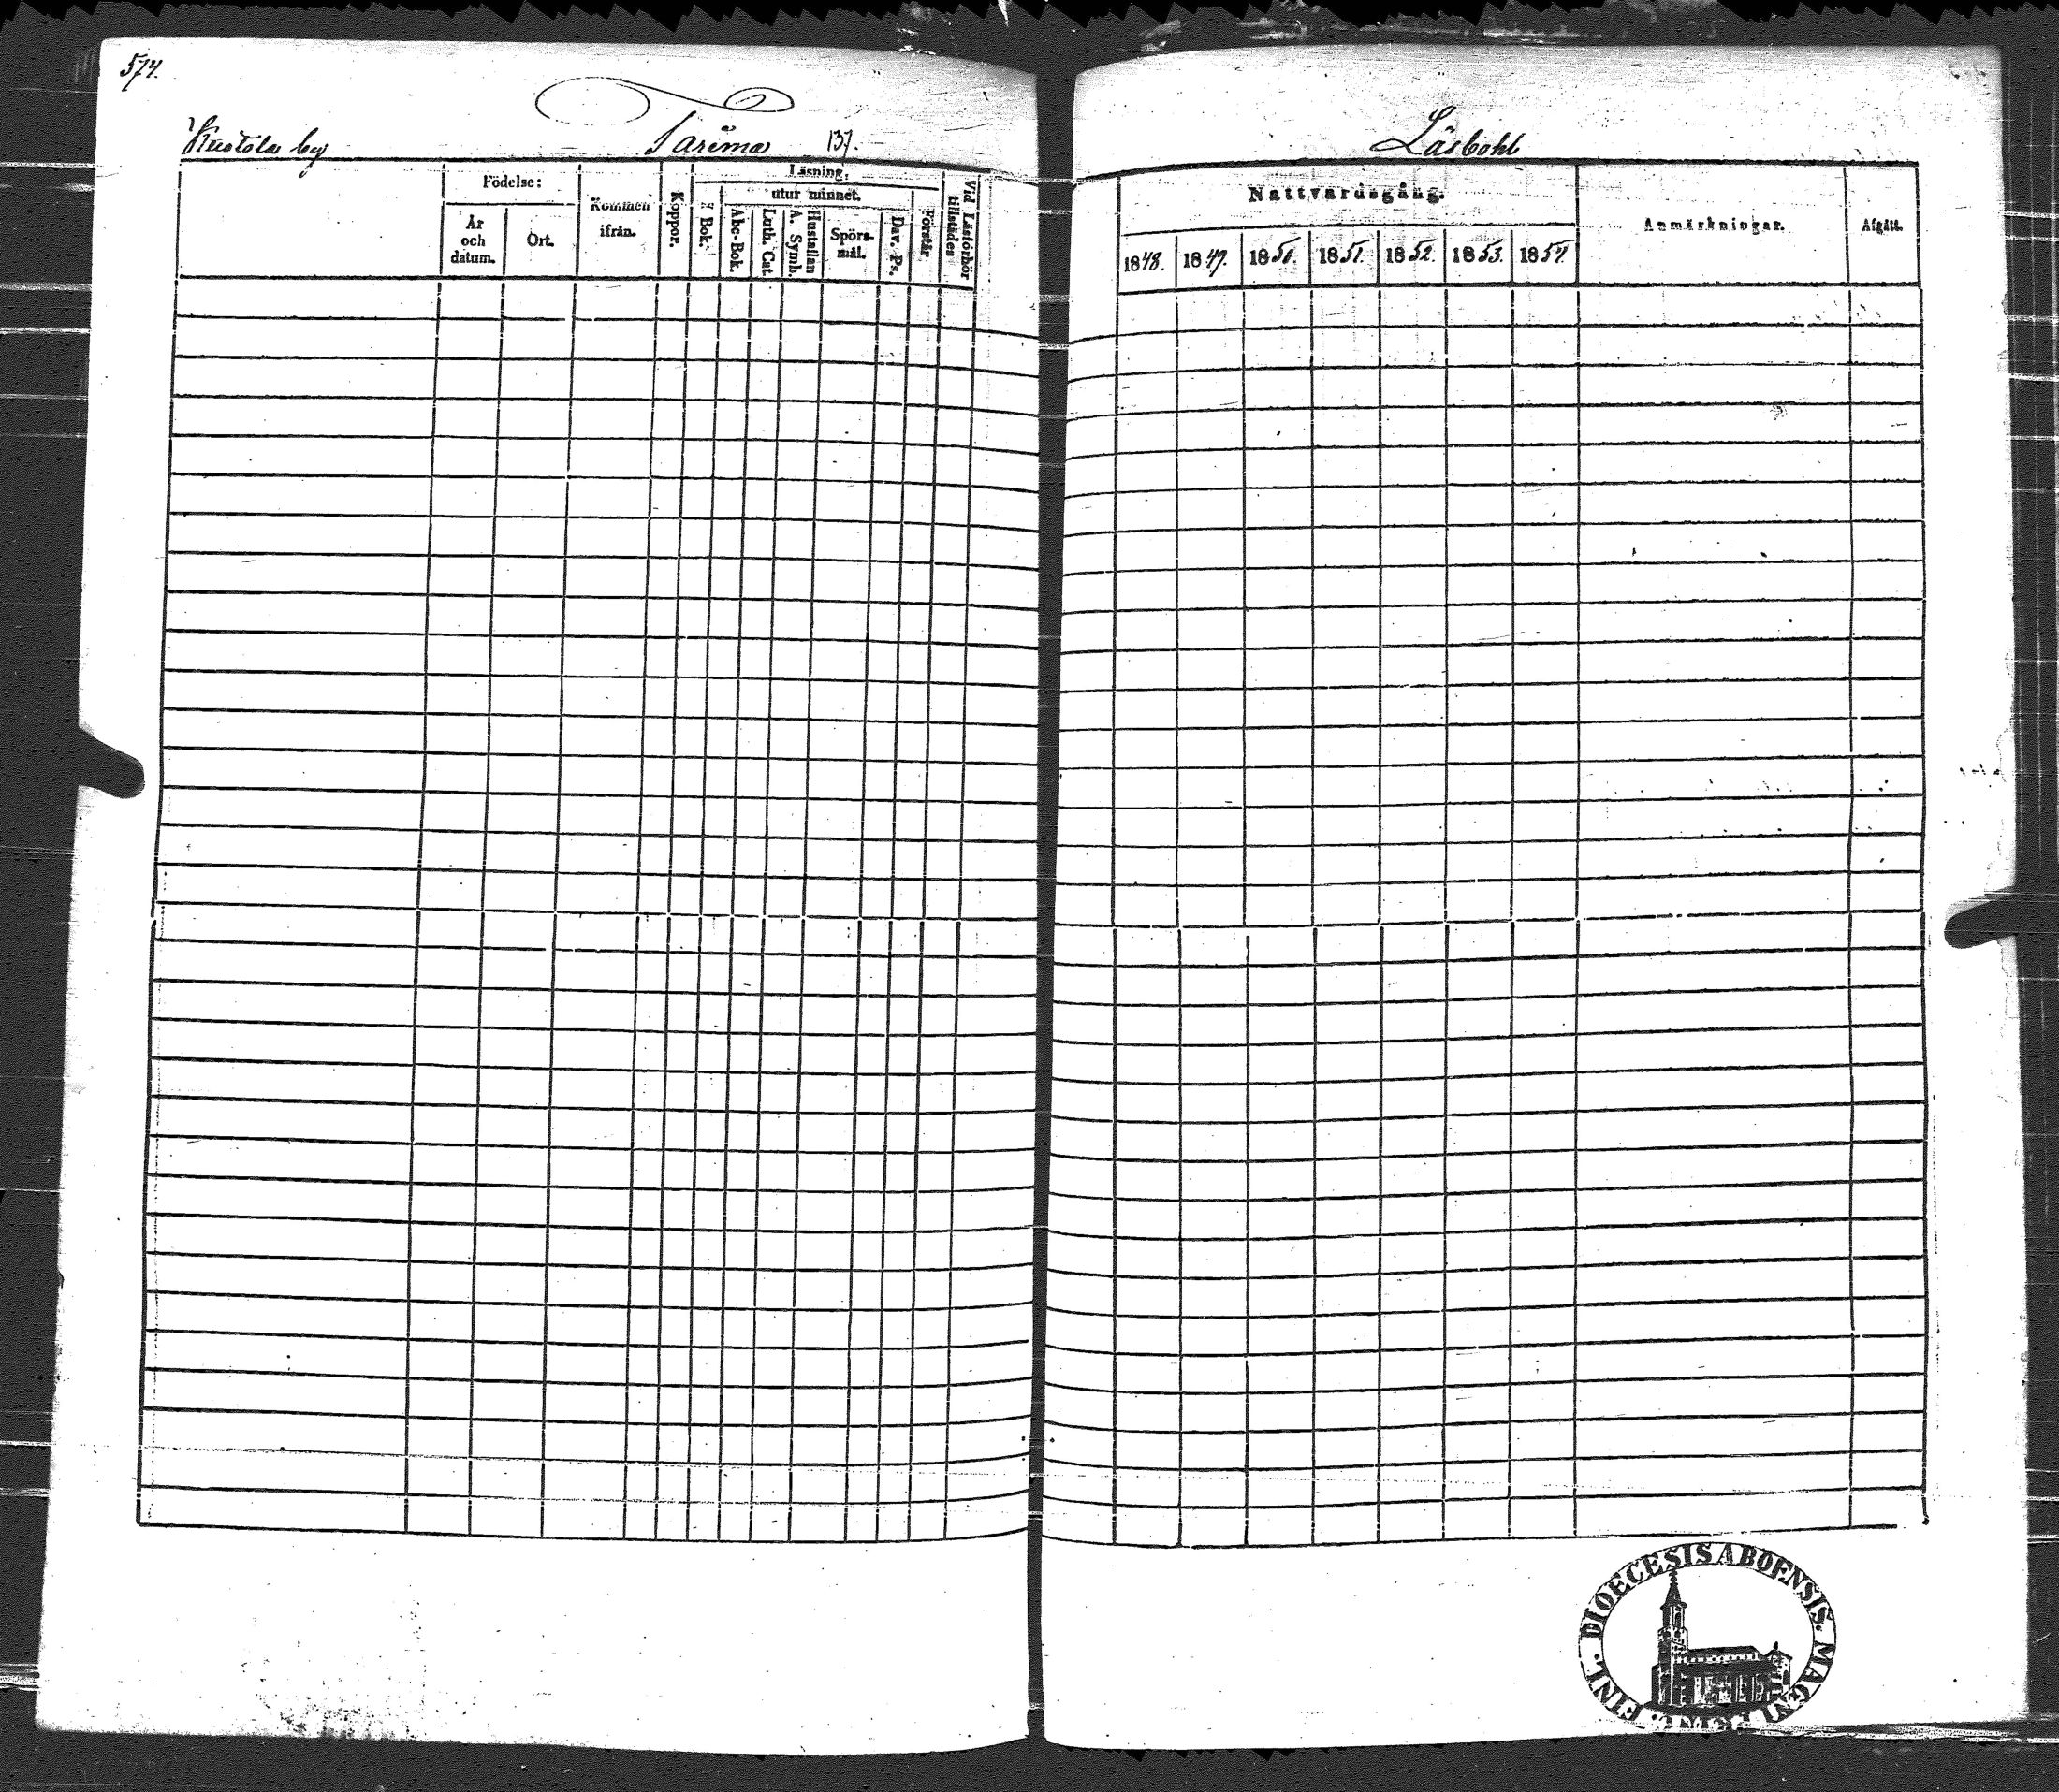 574.
by Tarima 137. Läsbohl
Födelse:
År och datum.
Ort.
Kommen ifrån.
Koppor.
Läsning,
I Bok.
utur minnet.
Abc-Bok.
Luth. Cat.
A. Symb.
Hustaflan
Spörs-mål.
Dav. Ps.
Förstår
Vid Läsförhör tillstädes
Nattvardsgång.
1848. 1849. 1850. 1851. 1852. 1853. 1854.
Anmärkningar.
Afgått.
DIOECESIS ABOENSIS. MAGNI FINL.